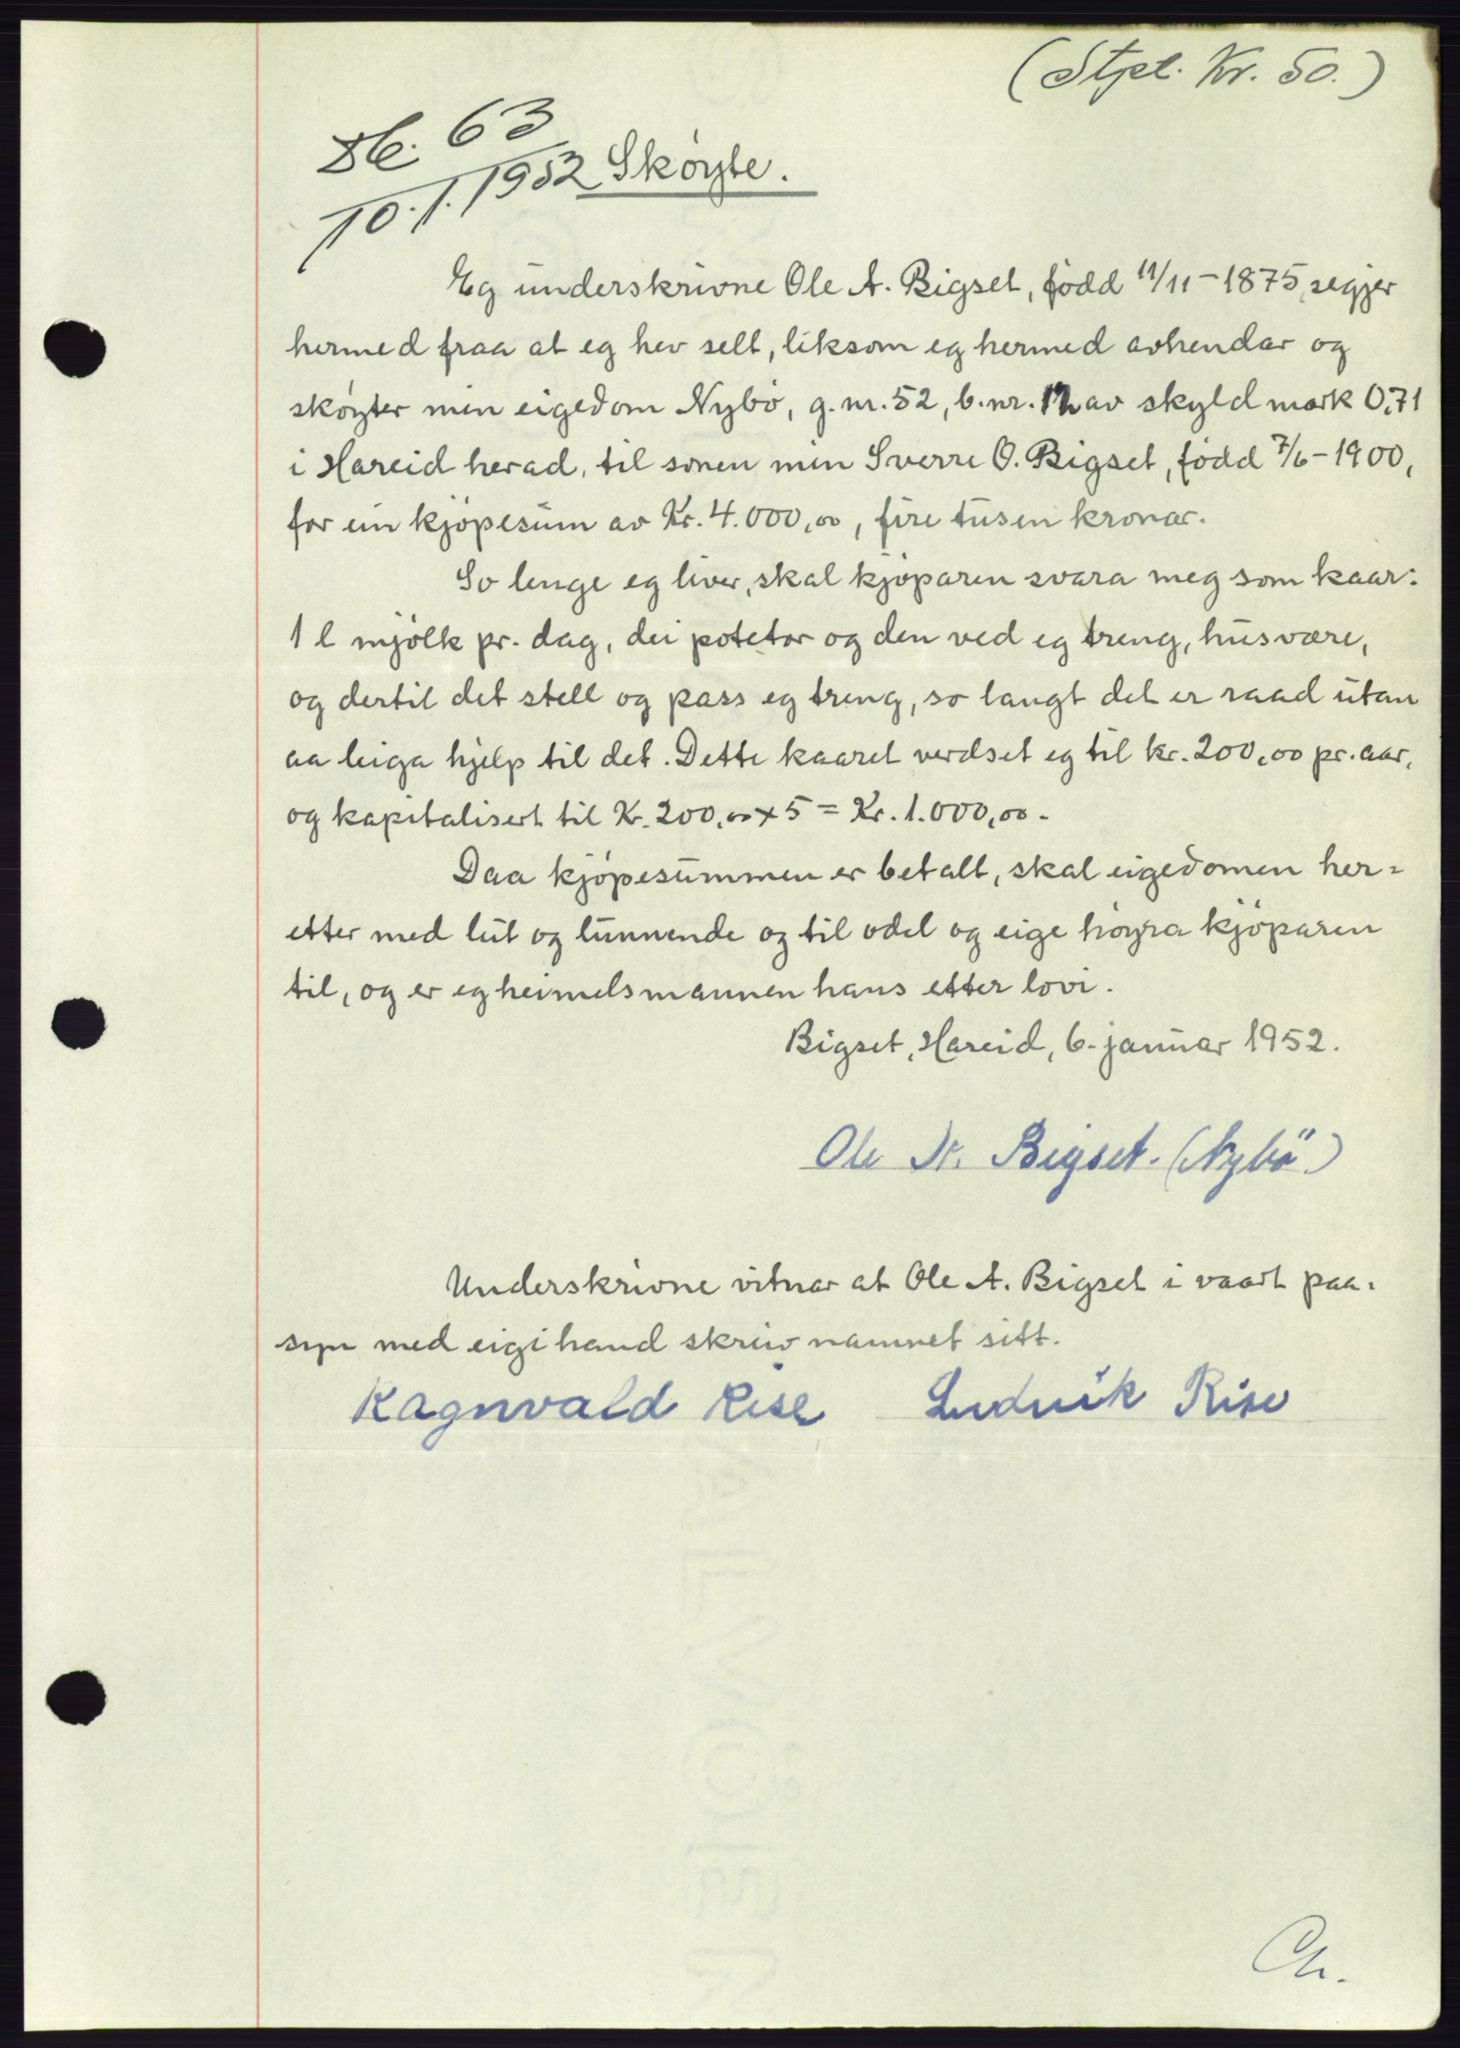 (Stpl. Kr. 50.)
Db. 63
10.1.1952 Skøyte.
Eg underskrivne Ole A. Bigset, fødd 11/11-1875, segjer
hermed fraa at eg hev selt, liksom eg hermed avhendar og
skøyter min eigedom Nybø, g.nr. 52, b.nr. 12 av skyld mark 0,71
i Hareid herad, til sonen min Sverre O. Bigset, fødd 7/6-1900,
for ein kjøpesum av Kr. 4.000,00, fire tusen kronar.
So lenge eg liver, skal kjøparen svara meg som kaar:
1 l mjølk pr. dag, dei potetor og den ved eg treng, husvære,
og dertil det stell og pass eg treng, so langt det er raad utan
aa leiga hjelp til det. Dette kaaret verdset eg til kr. 200,00 pr. aar,
og kapitalisert til Kr. 200,00 x 5 = Kr. 1.000,00.
Daa kjøpesummen er betalt, skal eigedomen her=
etter med lut og lunnende og til odel og eige høyra kjøparen
til, og er eg heimelsmannen hans etter lovi.
Bigset, Hareid, 6. januar 1952.
Ole A. Bigset. (Nybö)
Underskrivne vitnar at Ole A. Bigset i vaart paa=
syn med eigi hand skreiv namnet sitt.
Ragnvald Rise Ludvik Rise
Ch.